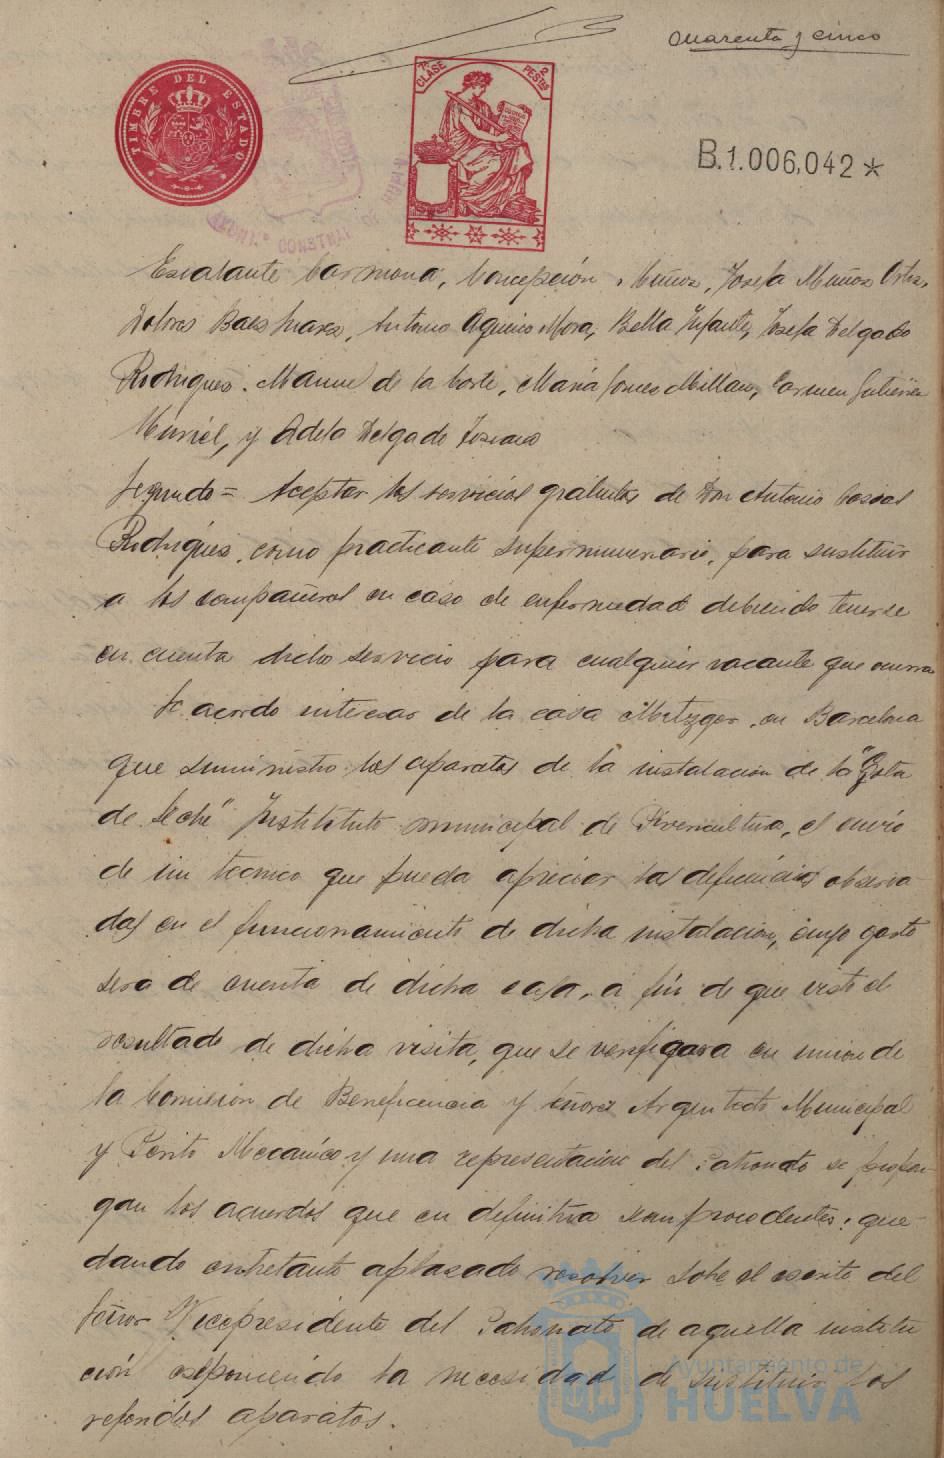 Cuarenta y cinco
TIMBRE DEL ESTADO
7ª CLASE 2 PESETAS
B.1.006,042*
AYUNTº CONSTNAL DE HUELVA
Escalante Carmona, Concepción Muñoz, Josefa Muñoz Ortiz,
Dolores Baes Suarez, Antonio Aquino Mora, Bella Infantes, Josefa Delgado
Rodrigues. Manuel de la Corte, María Gomes Millan, Carmen Gutiérrez
Muriel, y Adela Delgado Toscano
Segundo = Aceptar los servicios gratuitos de Don Antonio Casas
Rodrigues, como practicante supernumerario, para sustituir
a los compañeros en caso de enfermedad debiendo tenerse
en cuenta dicho servicio para cualquier vacante que ocurra
Se acordo interesar de la casa Metzger, en Barcelona
que suministro los aparatos de la instalación de la "Gota
de Leche" Instituto municipal de Puericultura, el envío
de un tecnico que pueda apreciar las deficiencias observa-
das en el funcionamiento de dicha instalación, cuyo gasto
sera de cuenta de dicha casa, a fin de que visto el
resultado de dicha visita, que se verifigara en union de
la Comision de Beneficencia y señores Arquitecto Municipal
y Perito Mecanico y una representacion del Patronato se propon-
gan los acuerdos que en definitiva sean procedentes; que-
dando entretanto aplazado resolver sobre el escrito del
Señor Vicepresidente del Patronato de aquella institu
ción exponiendo la necesidad de sustituir los
referidos aparatos.
Ayuntamiento de
HUELVA